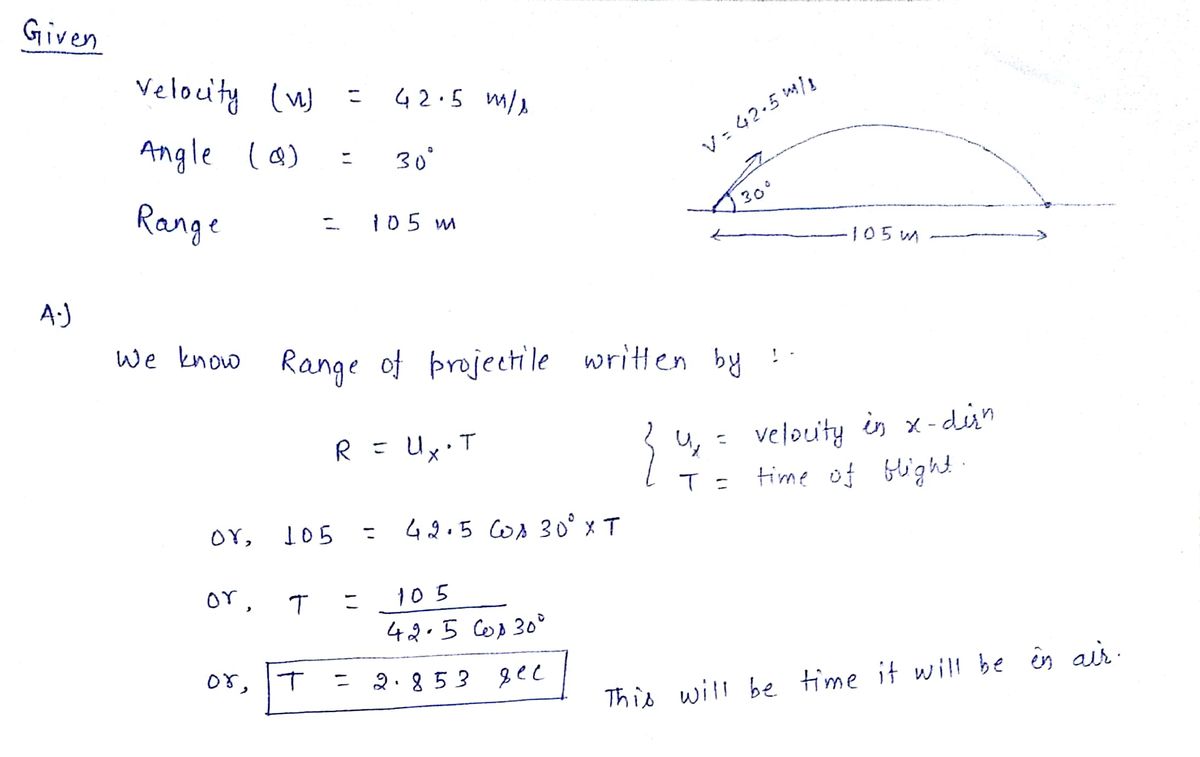 Given
Velocity (u) = 42.5 m/s
Angle (θ) = 30°
Range = 105 m
V = 42.5 m/s
30°
105 m
A.)
We know Range of projectile written by :-
R = Ux . T
{ Ux = velocity in x-dirn
T = time of flight.
or, 105 = 42.5 Cos 30° x T
or, T = 105 / 42.5 Cos 30°
or, T = 2.853 sec
This will be time it will be in air.